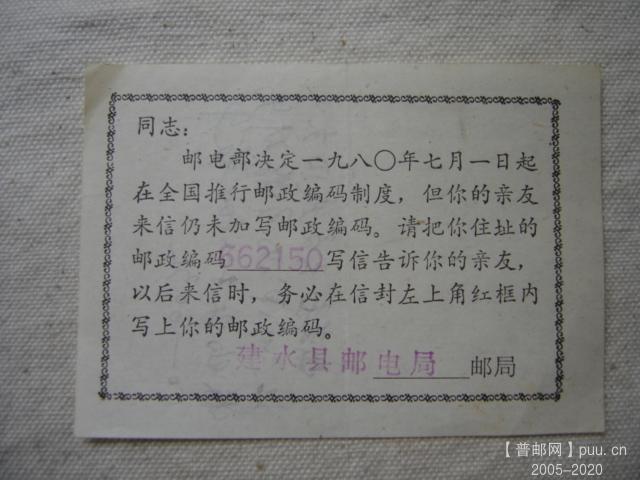 同志：
邮电部决定一九八〇年七月一日起
在全国推行邮政编码制度，但你的亲友
来信仍未加写邮政编码。请把你住址的
邮政编码662150写信告诉你的亲友，
以后来信时，务必在信封左上角红框内
写上你的邮政编码。
建水县邮电局 邮局
【普邮网】puu.cn
2005-2020